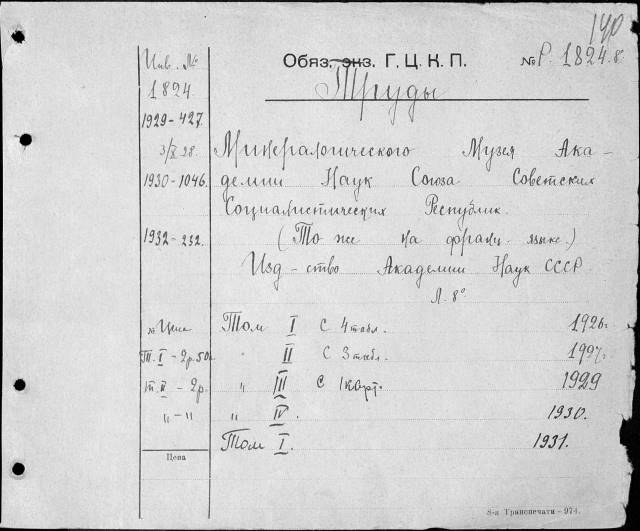 140
Обяз. экз. Г. Ц. К. П. № Р. 1824.8.
Труды
Инв. №
1824
1929-427.
3/X 28.
Минералогического Музея Ака-
1930-1046.
демии Наук Союза Советских
Социалистических Республик.
1932-232.
(То же на франц. языке.)
Изд-ство Академии Наук СССР.
Л. 8°
№ Цена
Том I с 4 табл. 1926.
Т. I - 2р. 50к.
" II с 3 табл. 1927.
Т. II - 2р.
" III с 1 карт. 1929
" - "
" IV. 1930.
Том I. 1931.
Цена
8-я Транспечати - 974.